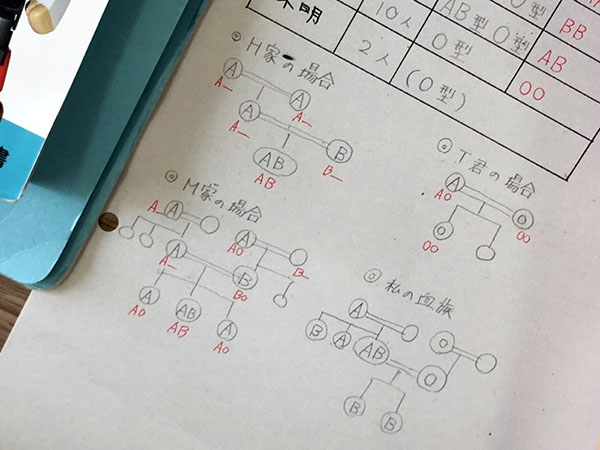 型
BB
不明
10人
AB型 O型
AB
2人
O型
(O型)
OO
◎H家の場合
A
A
A_
A_
A
B
A_
B_
AB
AB
◎T君の場合
A
AO
O
OO
O
OO
◎M家の場合
A_
A
A
AO
B_
A
B
A_
BO
A
AB
A
AO
AB
AO
◎私の血族
A
B
A
AB
O
O
B
B
書